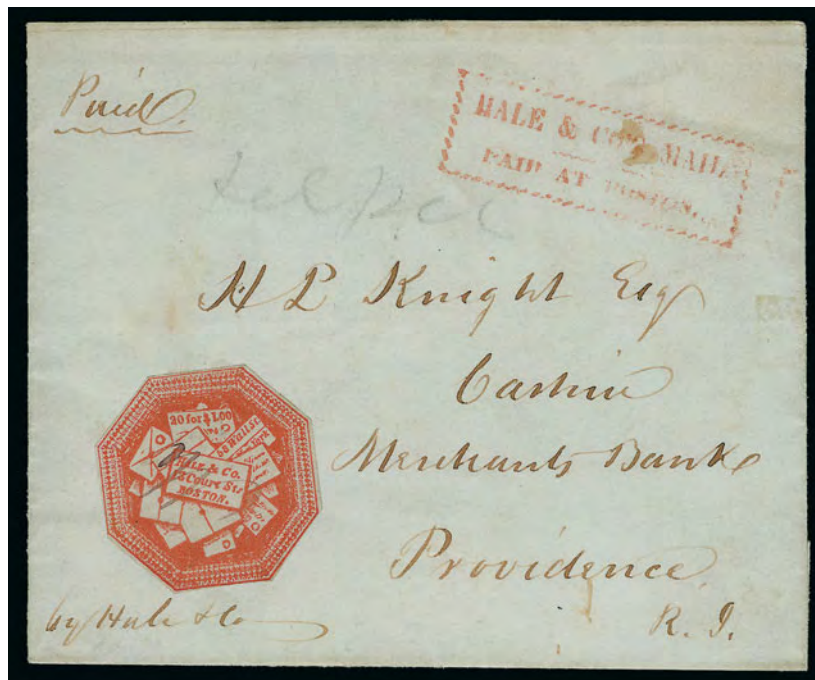 Paid
HALE & CO'S MAIL,
PAID AT BOSTON.
H P Knight Esq
Cashier
Merchants Bank
Providence
R. I.
20 for $1.00
HALE & Co.
13 Court St.
BOSTON.
by Hale & Co